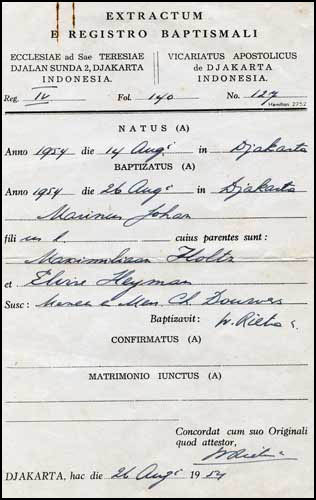 EXTRACTUM
E REGISTRO BAPTISMALI
ECCLESIAE ad Sae TERESIAE
DJALAN SUNDA 2, DJAKARTA
INDONESIA.
VICARIATUS APOSTOLICUS
de DJAKARTA
INDONESIA.
Reg. IV Fol. 140 No. 127
Hamilton 2752
NATUS (A)
Anno 1954 die 14 Aug. in Djakarta
BAPTIZATUS (A)
Anno 1954 die 26 Aug. in Djakarta
Marinus Johan
fili us l. cuius parentes sunt :
Maximiliaan Holtz
et Elvire Heyman
Susc : Ch. Douwes
Baptizavit :
CONFIRMATUS (A)
MATRIMONIO IUNCTUS (A)
Concordat cum suo Originali
quod attestor,
DJAKARTA, hac die 26 Aug. 1954